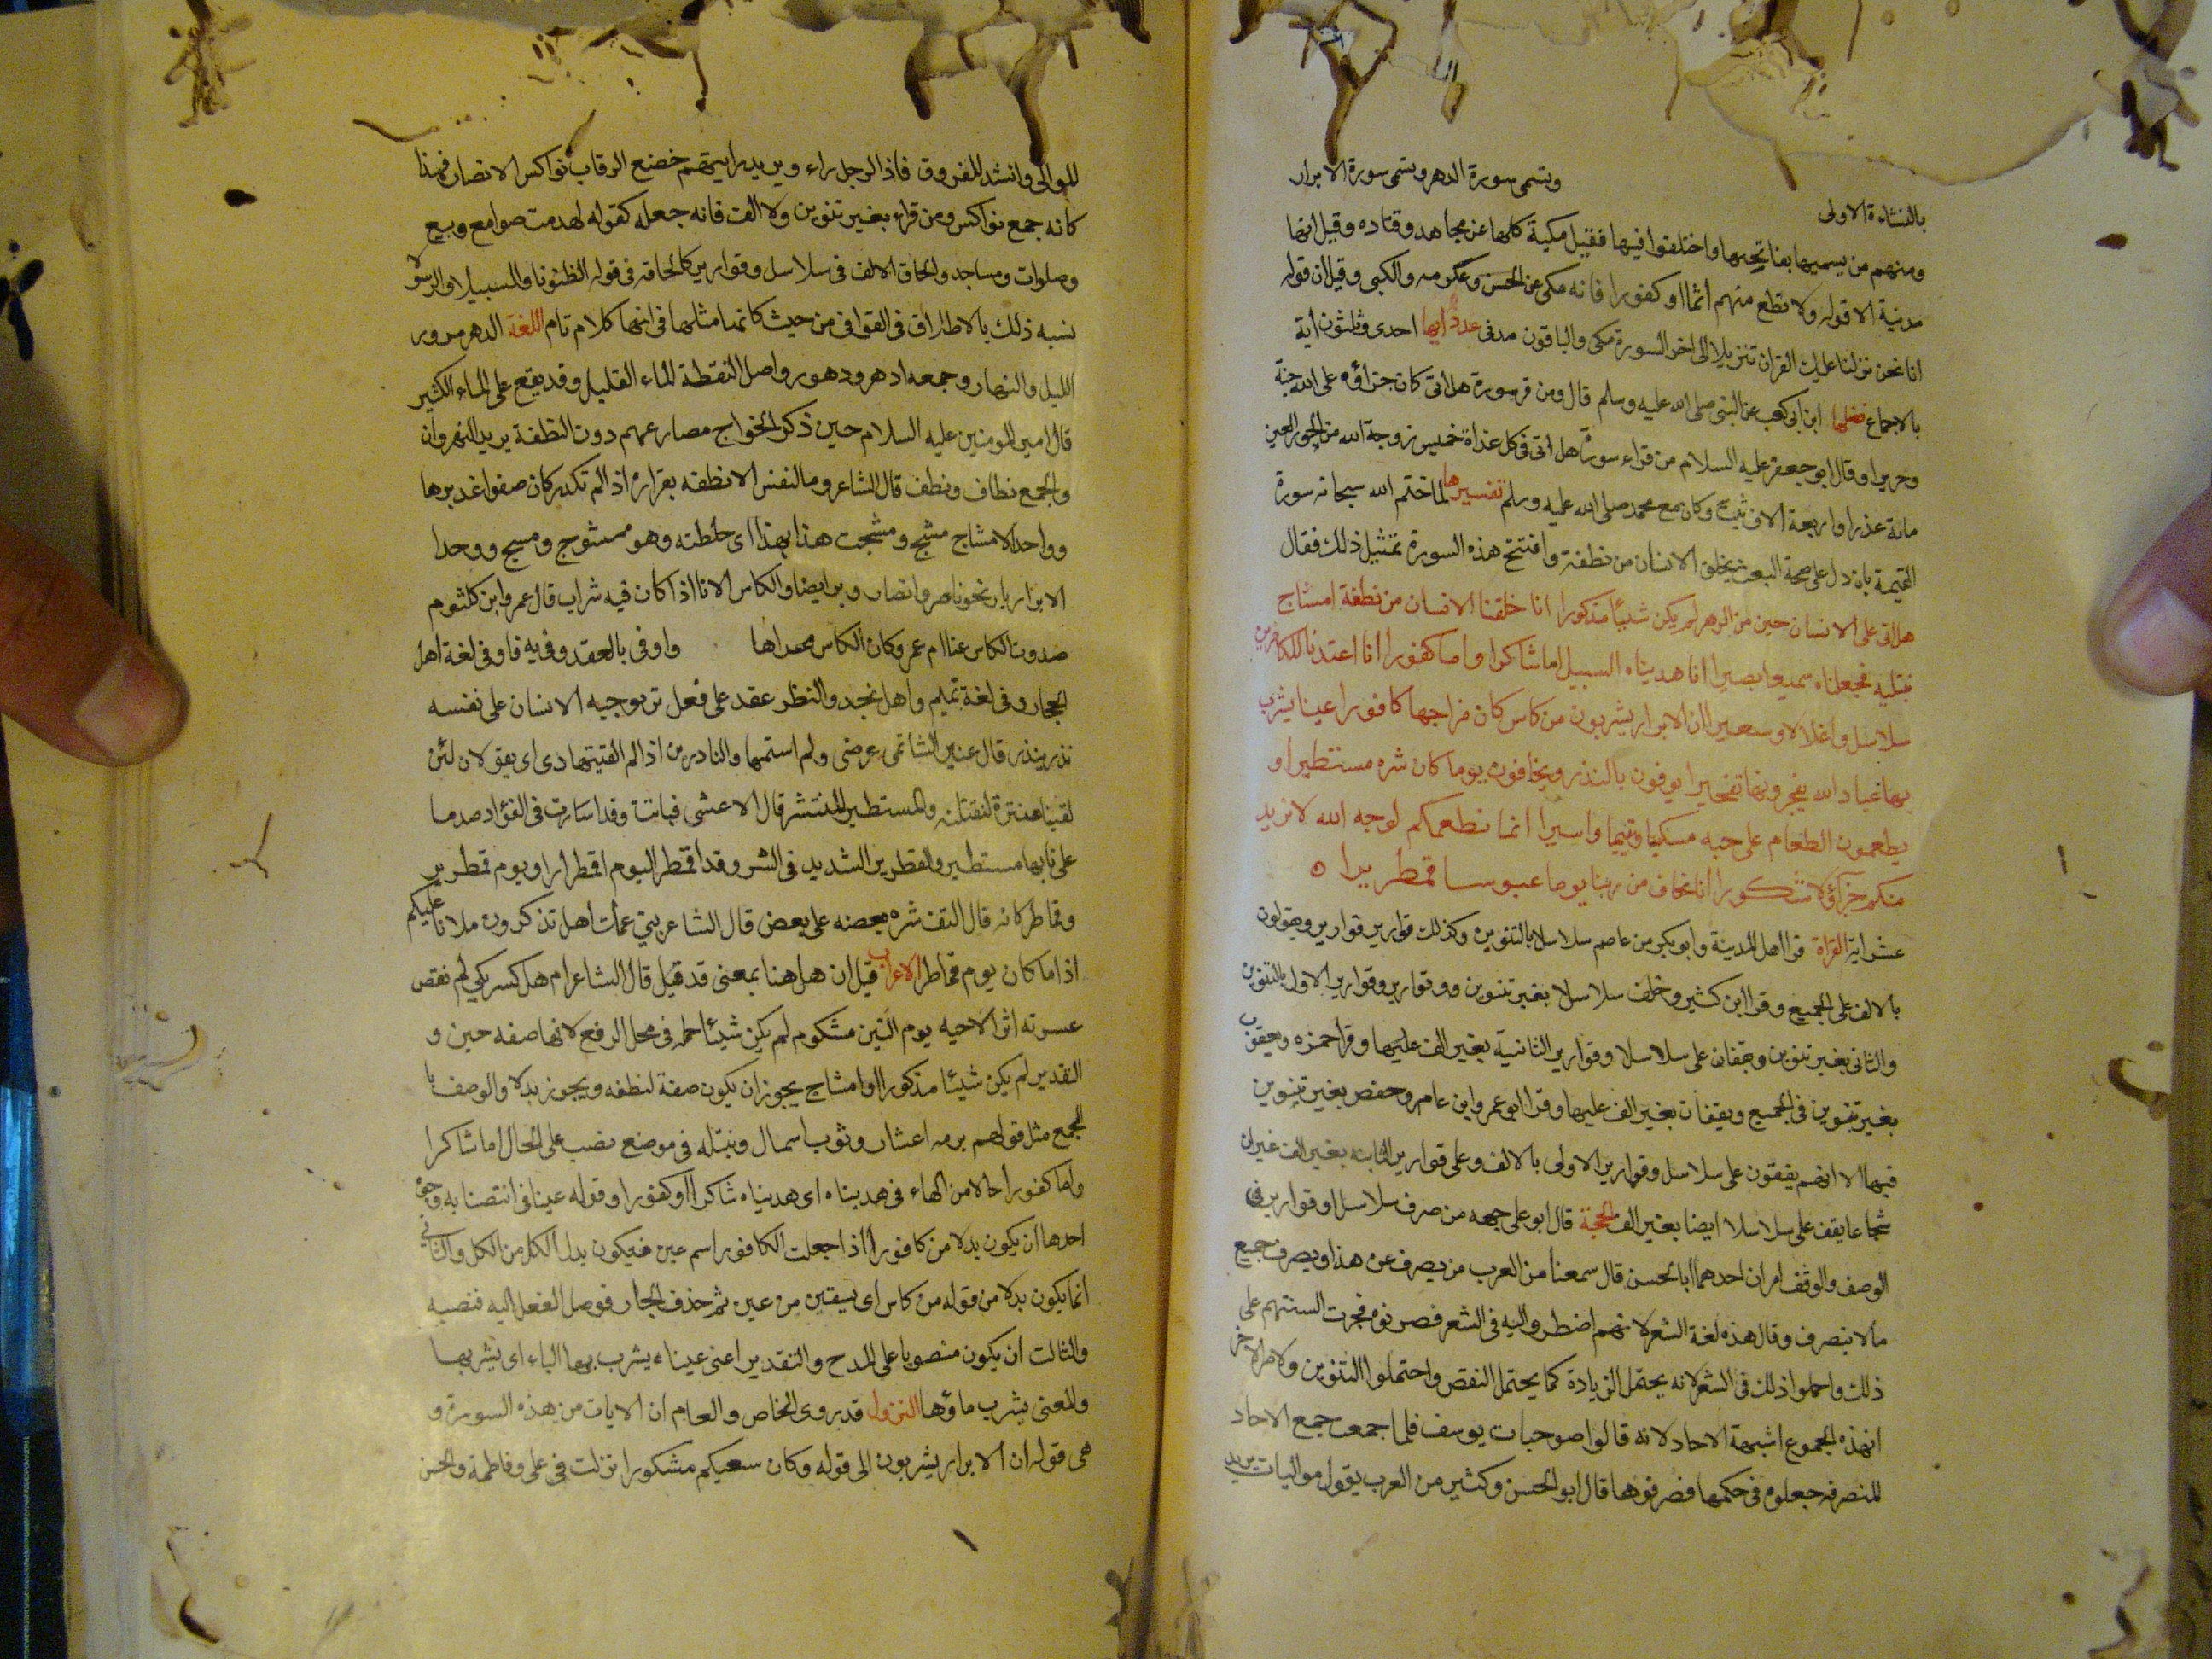 وتسمى سورة الدهر وتسمى سورة الابرار
بالنشاءة الاولى
ومنهم من يسميها بفاتحتها واختلفوا فيها فقيل مكية كلها عن مجاهد وقتاده وقيل انها
مدنية الا قوله ولا تطع منهم اثما او كفورا فانه مكى عن الحسن وعكرمه والكبى وقيل ان قوله
انا نحن نزلنا عليك القران تنزيلا الى اخر السورة مكى والباقون مدنى عدد ايها احدى وثلثون اية
بالاجماع فضلها ابن ابى كعب عن النبى صلى الله عليه وسلم قال ومن قر سورة هل اتى كان جزاؤه على الله جنة
وحريرا وقال ابو جعفر عليه السلام من قراء سورة هل اتى فى كل غداة خميس زوجة الله من الحور العين
مائة عذرا واربعة الاف ثيب وكان مع محمد صلى الله عليه وسلم تفسيرها لما ختم الله سبحانه سورة
القيمة بان دل على صحة البعث بخلق الانسان من نطفة وافتتح هذه السورة بمثيل ذلك فقال
هل اتى على الانسان حين من الدهر لم يكن شيئا مذكورا انا خلقنا الانسان من نطفة امشاج
نبتليه فجعلناه سميعا بصيرا انا هديناه السبيل اما شاكرا واما كفورا انا اعتدنا للكافرين
سلاسل واغلالا وسعيرا ان الابرار يشربون من كاس كان مزاجها كافورا عينا يشرب
بها عباد الله يفجرونها تفجيرا يوفون بالنذر ويخافون يوما كان شره مستطيرا و
يطعمون الطعام على حبه مسكينا ويتيما واسيرا انما نطعمكم لوجه الله لا نريد
منكم جزآؤ لا شكورا انا نخاف من ربنا يوما عبوسا قمطريرا
عشر اية القراة قرا اهل المدينة وابو بكر من عاصم سلاسلا بالتنوين وكذلك قوارير قوارير ويقولون
بالالف على الجميع وقرا ابن كثير وخلف سلاسلا بغير تنوين ووقوارير وقوارير الاول بالتنوين
والثانى بغير تنوين وبقفان على سلاسلا وقوارير الثانية بغير الف عليها وقرا حمزه ويعقوب
بغير تنوين فى الجميع ويقفان بغير الف عليها وقرا ابو عمرو ابن عامر وحفص بغير تنوين
فيها الا انهم يقفون على سلاسل وقوارير الاولى بالالف وعلى قوارير الثانيه بغير الف غير ان
شجاعا يقف على سلاسلا ايضا بغير الف الحجة قال ابو على جهه من صرف سلاسل او قوارير فى
الوصف والوقف امران احدهما ابا الحسن قال سمعنا من العرب من يصرف عن هذا ويصرف جميع
مالا ينصرف وقال هذه لغة الشعر لانهم اضطروا اليه فى الشعر فصرفوه فجرت السنتهم على
ذلك واحملوا ذلك فى الشعر لانه يحتمل الزيادة كما يحتمل النقص واحتملوا التنوين والامر الاخر
ان هذه الجموع اشبهة الاحاد لانه قالوا صوحبات يوسف فلما جمعت جمع الاحاد
المنصرفه جعلوه فى حكمها فصرفوها قال ابو الحسن وكثير من العرب يقول مواليات يريد
للموالى وانشد للفرذق فاذا الرجل راء ويريد رايتهم خضع الرقاب نواكس الانصار فهذا
كانه جمع نواكس ومن قراء بغير تنوين ولا الف فانه جعله كقوله لهدمت صوامع وبيع
وصلوات ومساجد والحاق الالف فى سلاسل وقوارير كالحاقه فى قوله الظنونا والسبيلا والرسولا
نسبه ذلك بالاطلاق فى القوافى من حيث كانت امثالها فى انها كلام تام اللغة الدهر مرور
الليل والنهار وجمعه ادهر ودهور واصل النقطة الماء القليل وقد يقع على الماء الكثير
قال امير المومنين عليه السلام حين ذكر الخواج مصارعهم دون النظفة يريد النهروان
والجمع نطاف ونطف قال الشاعر وما النفس الا نطفه بقراره اذا لم تكدر كان صفوا غديرها
وواحد الامشاج مشج ومشجت هذا بهذا اى خلطته وهو ممشوج ومسيج ووحدا
الابرار بار نحو ناصر وانصار وبر ايضا والكاس الانا اذا كان فيه شراب قال عمرو ابن كلثوم
صددت الكاس عنا ام عمرو كان الكاس مجراها واوفى بالعقد ووفى به فاوفى لغة اهل
الحجاز وفى لغة تميم واهل نجد والنظر عقد على فعل بر يوجبه الانسان على نفسه
نذر ينذر قال عنتر الشاتمى عرضى ولم استمها والنادرين اذا لم القيتهما دى اى يقولان لئن
لقينا عنترة لنقتلنه والمستطير المنتشر قال الاعشى فبانت وقد اسارت فى الفؤاد صدما
على نابها مستطير والقمطرير الشديد فى الشر وقد اقمطر اليوم اقمطرارا ويوم قمطرير
وقماطر كانه قال التف شره بعضه على بعض قال الشاعر بنى عمنا هل تذكرون ملانا عليكم
اذا ما كان يوم قماطر الاعراب قيل ان هل هنا بمعنى قد قيل قال الشاعر ام هل كسر بكى لم نقص
عسرته اثر الاحبه يوم البين مشكوم لم يكن شيئا جمله فى محل الرفع لانها صفه حين و
التقدير لم يكن شيئا مذكورا او امشاج يجوز ان يكون صفة لنطفه ويجوز بدلا والوصف با
لجمع مثل قولهم برمه اعشار وثوب اسمال ونبتليه فى موضع نصب على الحال اما شاكرا
واما كفورا حالا من الهاء فى هديناه اى هديناه شاكرا او كفورا وقوله عينا فى انتصابه وجوه
احدها ان يكون بدلا من كافورا اذا جعلت الكافور اسم عين فيكون بدل الكل من الكل والثانى
انما يكون بدلا من قوله من كاس اى يسقين من عين ثم حذف الجار فوصل الفعل اليه فنصبه
والثالث ان يكون منصوبا على المدح والتقدير اعنى عيناء يشرب بها الباء اى يشربها
والمعنى يشرب ماؤها النزول قد روى الخاص والعام ان الايات من هذه السورة و
هى قوله ان الابرار يشربون الى قوله وكان سعيكم مشكورا نزلت فى على وفاطمة والحسن